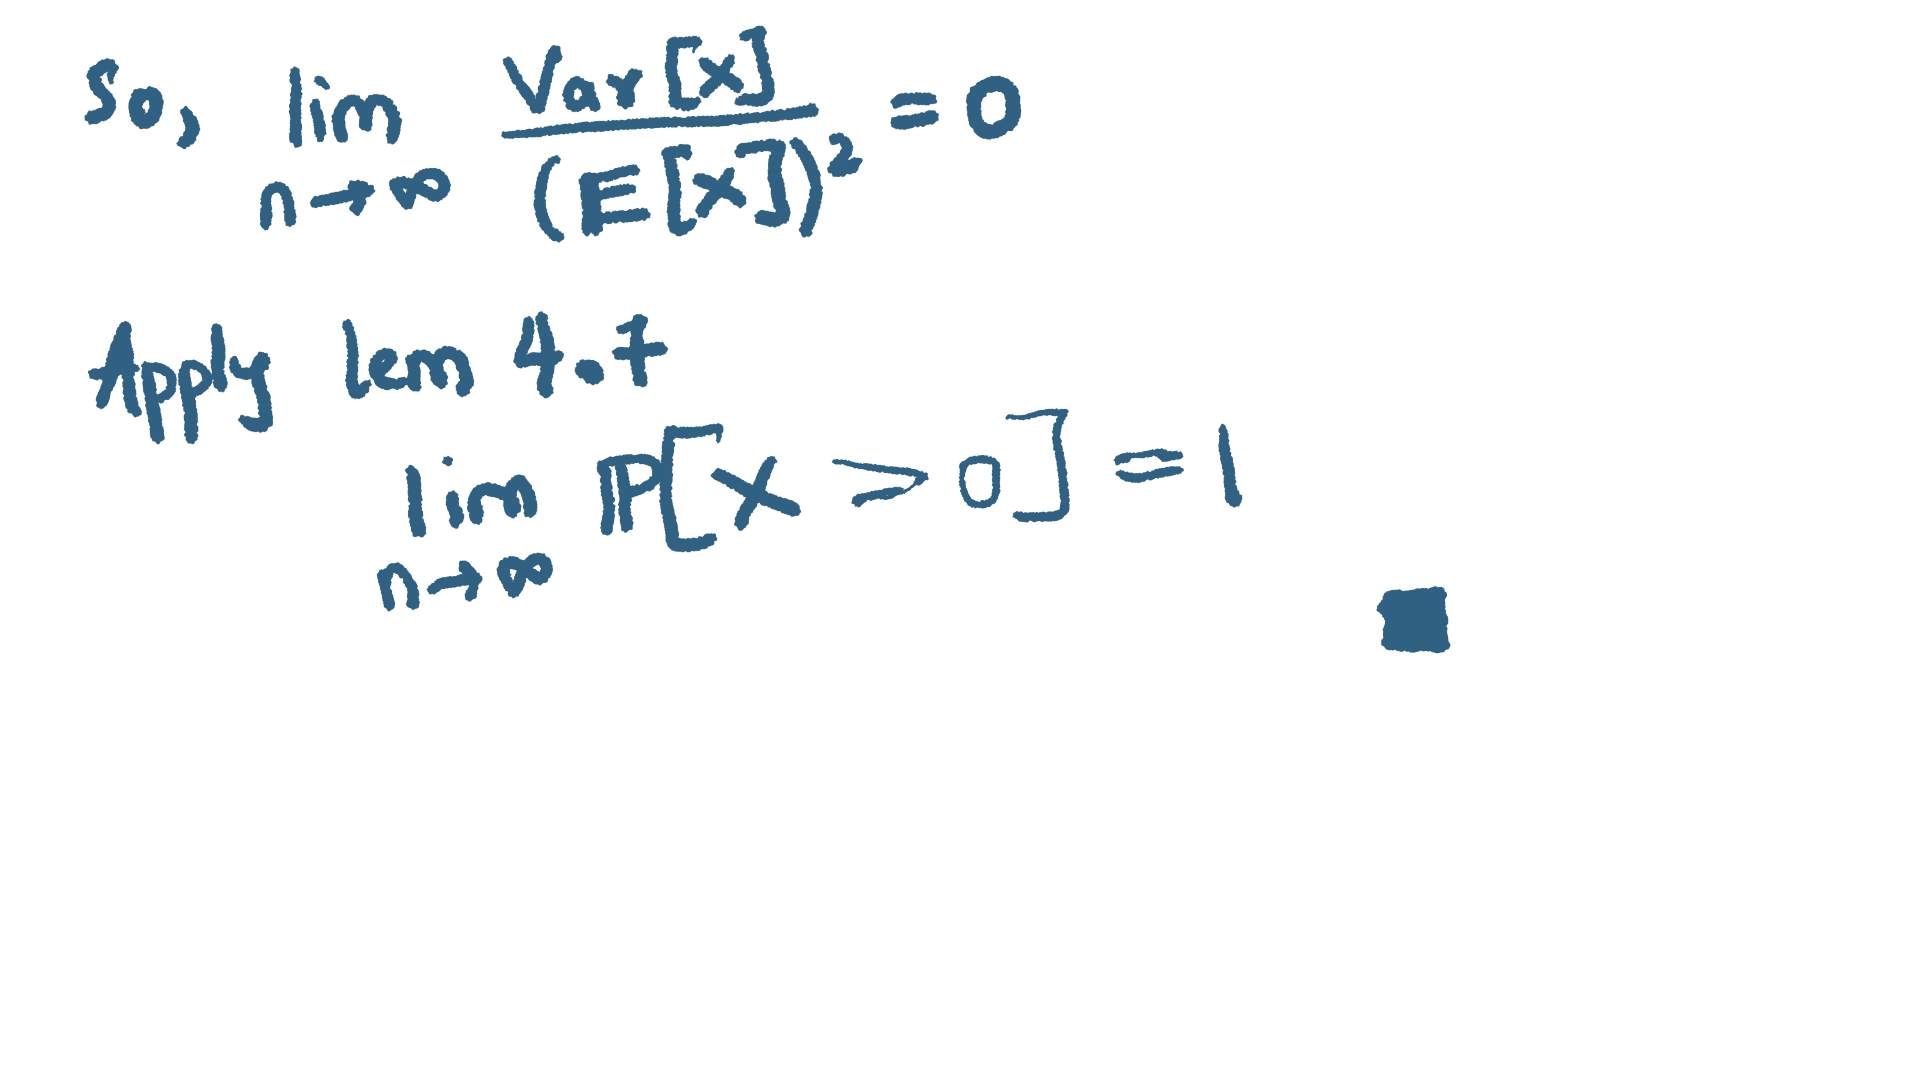 So, lim n→∞ Var[X] / (E[X])² = 0
Apply lem 4.7
lim n→∞ ℙ[X > 0] = 1
■